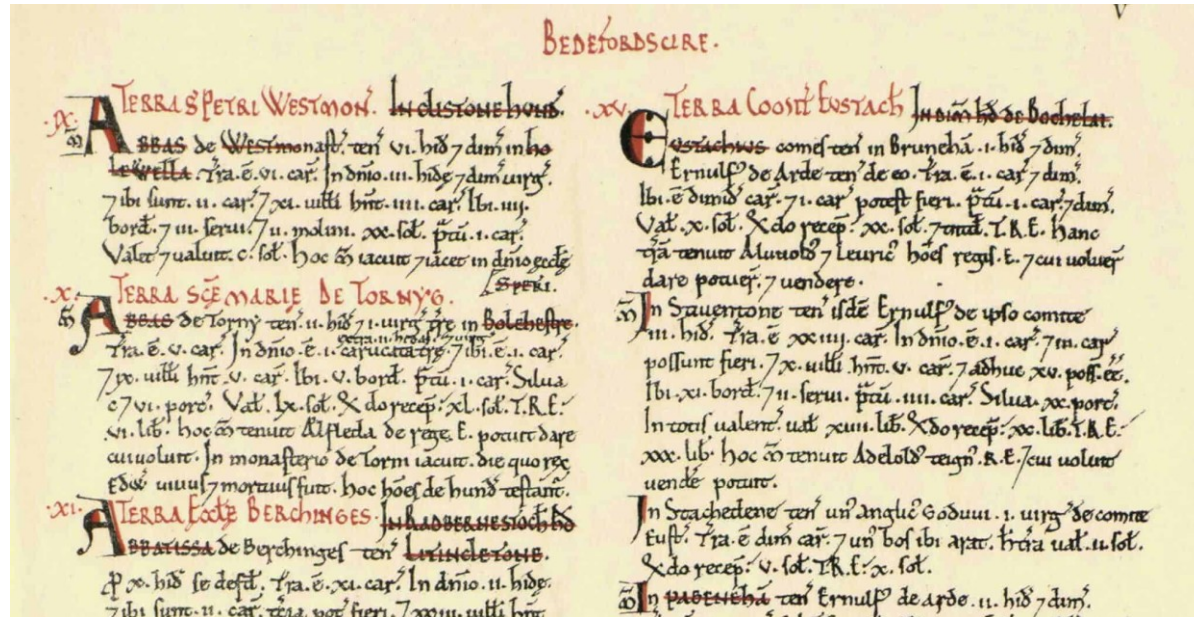 BEDEFORDSCIRE.
V
.IX. TERRA S PETRI WESTMON. In clistone hund.
ABBAS de Westmonast. ten vi. hid 7 dim in ho
lewella. Tra. e. vi. car. In dnio. iii. hide 7 dim virg.
7 ibi sunt. ii. car. 7 xi. uilli hnt. iiii. car. Ibi. iiii.
bord. 7 iii. serui. 7 ii. molini. xx. sol. ptu. i. car.
Valet 7 ualuit. c. sol. Hoc m iacuit 7 iacet in dnio eccle
S PETRI.
.X. TERRA SCE MARIE DE TORNYG.
ABBAS de Torny ten. ii. hid 7 i. uirg tre in Bolehestre.
Tra. e. v. car. In dnio. e. i. carucata tre. 7 ibi. e. i. car.
7 ix. uilli hnt. v. car. Ibi. v. bord. ptu. i. car. Silua
c 7 vi. porc. Val. lx. sol. & do recep. xl. sol. T.R.E.
vi. lib. hoc m tenuit Alfleda de rege. E. potuit dare
cui uoluit. In monasterio de Torni iacuit. die quo rex
Edw uiuus 7 mortuus fuit. hoc hoes de hund testant.
.XI. TERRA Eccle BERCHINGES. In RADBERNESTOCH HD
ABBATISSA de Berchinges ten LITINCLETONE.
p x. hid se defd. Tra. e. xi. car. In dnio. ii. hide.
7 ibi sunt. ii. car. tcia pot fieri. 7 uilli hnt
.XV. TERRA COMIT EUSTACH In dim hd de Bochelai.
EUSTACHIUS comes ten in Bruneha. i. hid 7 dim.
Ernulf de Arde ten de eo. Tra. e. i. car 7 dim.
Ibi. e dimid car. 7 i. car potest fieri. ptu. i. car. 7 dim.
Val. x. sol. & do recep. xx. sol. 7 tntd. T.R.E. hanc
tra tenuit Aluuold 7 Leuric hoes regis. E. 7 cui uoluer
dare potuer. 7 uendere.
M In Stauentone ten isde Ernulf de ipso comite
iii. hid. Tra. e xx iiii. car. In dnio. e. i. car. 7 iii. car
possunt fieri. 7 x. uilli. hnt. v. car. 7 adhuc xv. poss. ee.
Ibi. xi. bord. 7 ii. serui. ptu. iiii. car. Silua. xx. porc.
In totis ualent. ual xuiii. lib. & do recep. xx. lib. T.R.E.
xxx. lib. hoc m tenuit Adelold teign. R.E. 7 cui uoluit
uende potuit.
In Stachedene ten un anglic Goduui. i. uirg de comite
Eust. Tra. e dim car. 7 un bos ibi arat. h tra ual. ii. sol.
& do recep. v. sol. T.R.E. x. sol.
M In PABENEHA ten Ernulf de arde. ii. hid 7 dim.